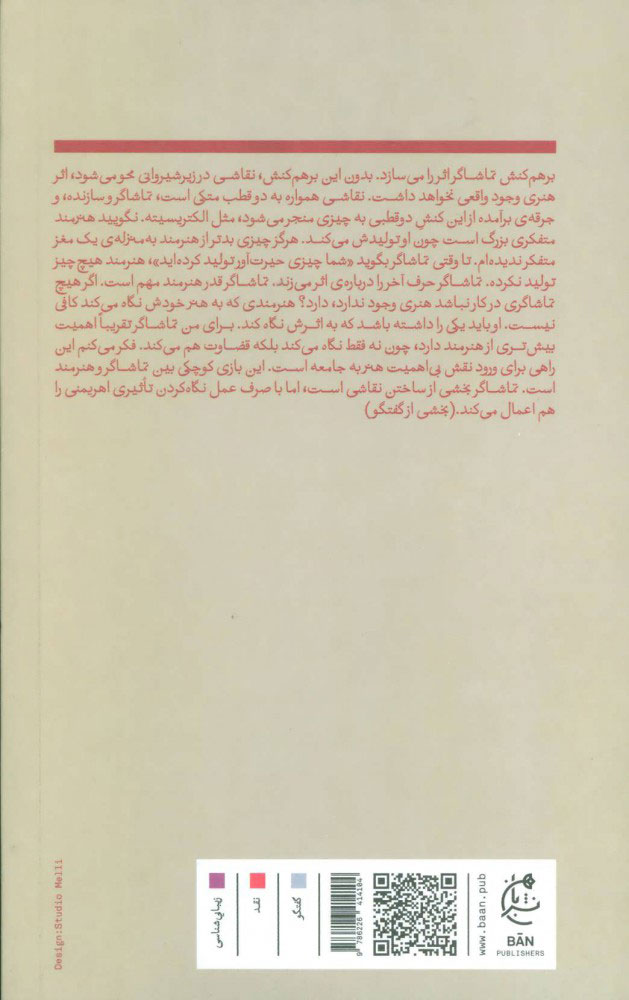 برهم‌کنش تماشاگر اثر را می‌سازد. بدون این برهم‌کنش، نقاشی در زیرشیروانی محو می‌شود، اثر
هنری وجود واقعی نخواهد داشت. نقاشی همواره به دو قطب متکی است، تماشاگر و سازنده، و
جرقه‌ی برآمده از این کنشِ دوقطبی به چیزی منجر می‌شود، مثل الکتریسیته. نگویید هنرمند
متفکری بزرگ است چون او تولیدش می‌کند. هرگز چیزی بدتر از هنرمند به‌منزله‌ی یک مغز
متفکر ندیده‌ام. تا وقتی تماشاگر بگوید «شما چیزی حیرت‌آور تولید کرده‌اید»، هنرمند هیچ چیز
تولید نکرده. تماشاگر حرف آخر را درباره‌ی اثر می‌زند. تماشاگر قدر هنرمند مهم است. اگر هیچ
تماشاگری در کار نباشد هنری وجود ندارد، دارد؟ هنرمندی که به هنر خودش نگاه می‌کند کافی
نیست. او باید یکی را داشته باشد که به اثرش نگاه کند. برای من تماشاگر تقریباً اهمیت
بیش‌تری از هنرمند دارد، چون نه فقط نگاه می‌کند بلکه قضاوت هم می‌کند. فکر می‌کنم این
راهی برای ورود نقش بی‌اهمیت هنر به جامعه است. این بازی کوچکی بین تماشاگر و هنرمند
است. تماشاگر بخشی از ساختن نقاشی است، اما با صرف عمل نگاه‌کردن تأثیری اهریمنی را
هم اعمال می‌کند. (بخشی از گفتگو)
Design:Studio Melli
زیبایی‌شناسی
نقد
گفتگو
9 786226 414104
www.baan.pub
نشر بان
BĀN
PUBLISHERS